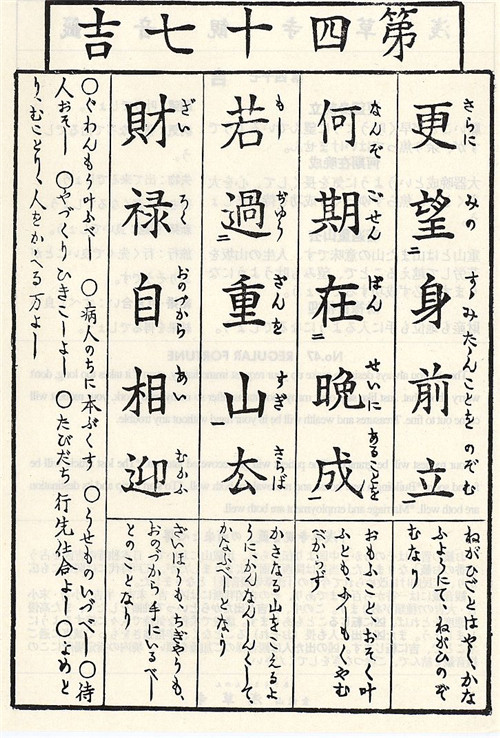 第四十七吉
更望身前立
さらに みの すゝみたらんことを のぞむ
ねがひごとはやくかな
ふようにて、ねがひのぞ
むなり
何期在晩成
なんぞ ごせん はん せいに あることを
おもふことおそく叶
ふとも、ふしもくやむ
べからず
若過重山去
もし ざんを すぎ さらば
かさなる山をこえるよ
うにかんなんしんくして、
かなふべしとなり
財禄自相迎
ざい ろく おのづから あい むかふ
ざいほうもちぎやうも、
おのづから手にいるべし
とのことなり
〇ぐわんもう叶ふべし 〇病人のちに本ぷくす 〇うせものいづべし 〇待
人おそし 〇やづくりひきこしよし 〇たびだち行先仕合よし 〇よめと
り、むことり、人をかゝへる万よし